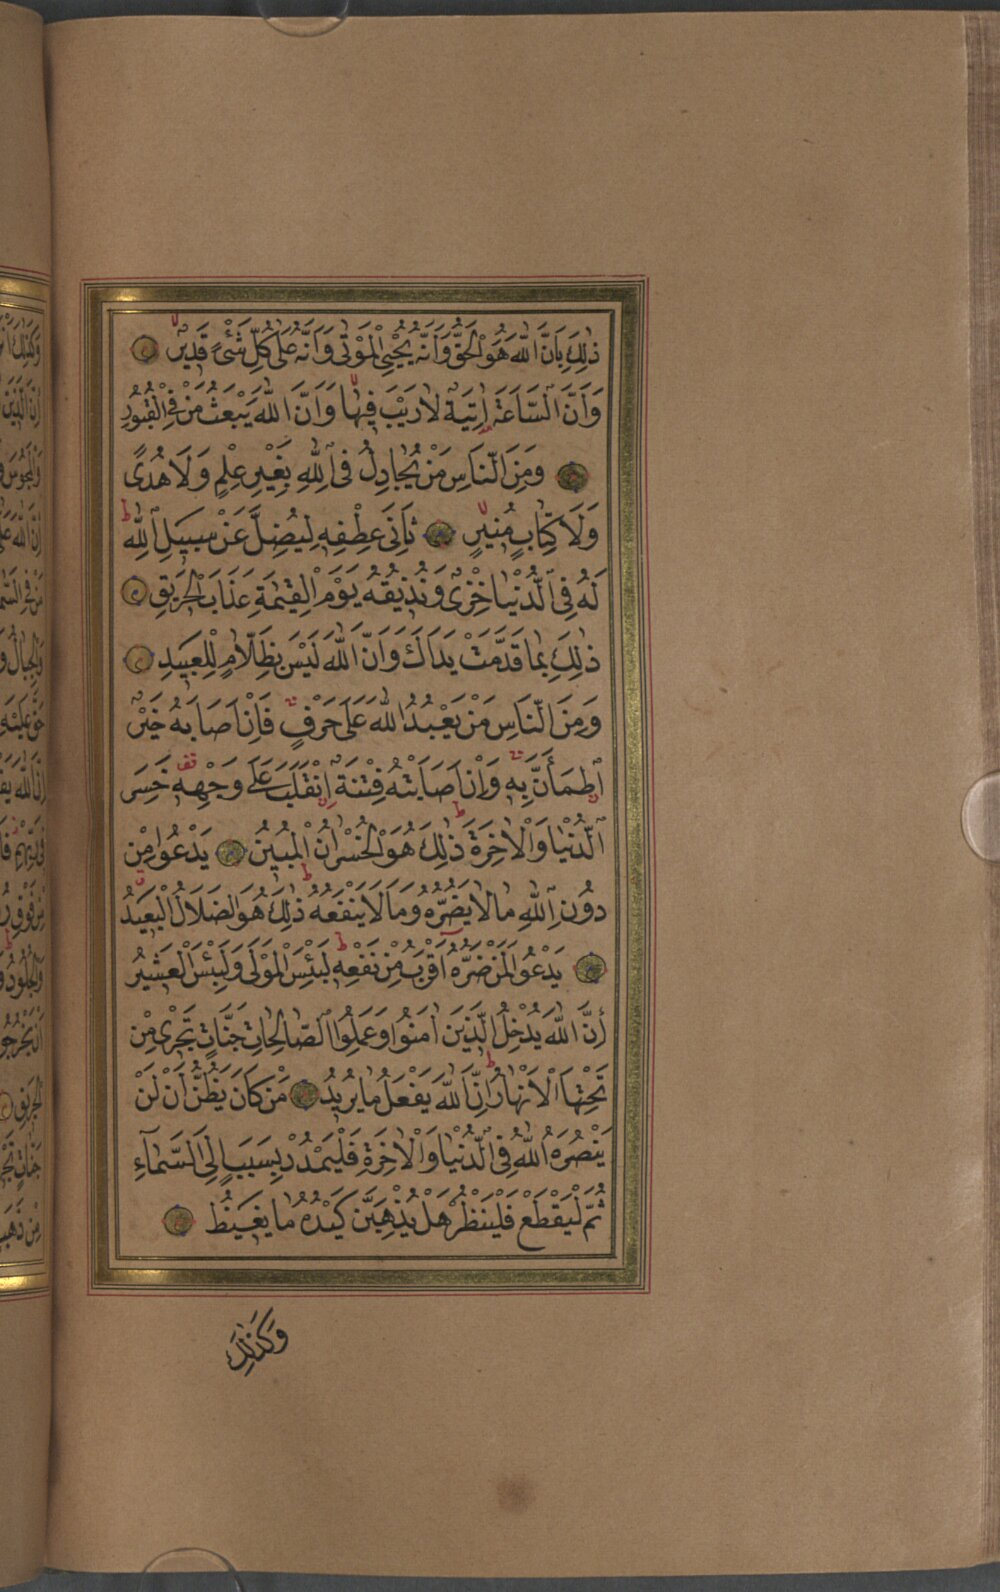 ذٰلِكَ بِاَنَّ اللّٰهَ هُوَ الْحَقُّ وَاَنَّهُ يُحْيِي الْمَوْتٰى وَاَنَّهُ عَلٰى كُلِّ شَيْءٍ قَدِيرٌ
وَاَنَّ السَّاعَةَ اٰتِيَةٌ لَا رَيْبَ فِيهَا وَاَنَّ اللّٰهَ يَبْعَثُ مَنْ فِي الْقُبُورِ
وَمِنَ النَّاسِ مَنْ يُجَادِلُ فِي اللّٰهِ بِغَيْرِ عِلْمٍ وَلَا هُدًى
وَلَا كِتَابٍ مُنِيرٍ ثَانِيَ عِطْفِهِ لِيُضِلَّ عَنْ سَبِيلِ اللّٰهِ ط
لَهُ فِي الدُّنْيَا خِزْيٌ وَنُذِيقُهُ يَوْمَ الْقِيٰمَةِ عَذَابَ الْحَرِيقِ
ذٰلِكَ بِمَا قَدَّمَتْ يَدَاكَ وَاَنَّ اللّٰهَ لَيْسَ بِظَلَّامٍ لِلْعَبِيدِ
وَمِنَ النَّاسِ مَنْ يَعْبُدُ اللّٰهَ عَلٰى حَرْفٍ فَاِنْ اَصَابَهُ خَيْرٌ
اِطْمَأَنَّ بِهِ وَاِنْ اَصَابَتْهُ فِتْنَةٌ اِنْقَلَبَ عَلٰى وَجْهِهِ قف خَسِرَ
الدُّنْيَا وَالْاٰخِرَةَ ط ذٰلِكَ هُوَ الْخُسْرَانُ الْمُبِينُ يَدْعُوا مِنْ
دُونِ اللّٰهِ مَا لَا يَضُرُّهُ وَمَا لَا يَنْفَعُهُ ط ذٰلِكَ هُوَ الضَّلَالُ الْبَعِيدُ
يَدْعُوا لَمَنْ ضَرُّهُ اَقْرَبُ مِنْ نَفْعِهِ ط لَبِئْسَ الْمَوْلٰى وَلَبِئْسَ الْعَشِيرُ
اِنَّ اللّٰهَ يُدْخِلُ الَّذِينَ اٰمَنُوا وَعَمِلُوا الصَّالِحَاتِ جَنَّاتٍ تَجْرِي مِنْ
تَحْتِهَا الْاَنْهَارُ ط اِنَّ اللّٰهَ يَفْعَلُ مَا يُرِيدُ مَنْ كَانَ يَظُنُّ اَنْ لَنْ
يَنْصُرَهُ اللّٰهُ فِي الدُّنْيَا وَالْاٰخِرَةِ فَلْيَمْدُدْ بِسَبَبٍ اِلَى السَّمَآءِ
ثُمَّ لْيَقْطَعْ فَلْيَنْظُرْ هَلْ يُذْهِبَنَّ كَيْدُهُ مَا يَغِيظُ
وَكَذٰلِكَ